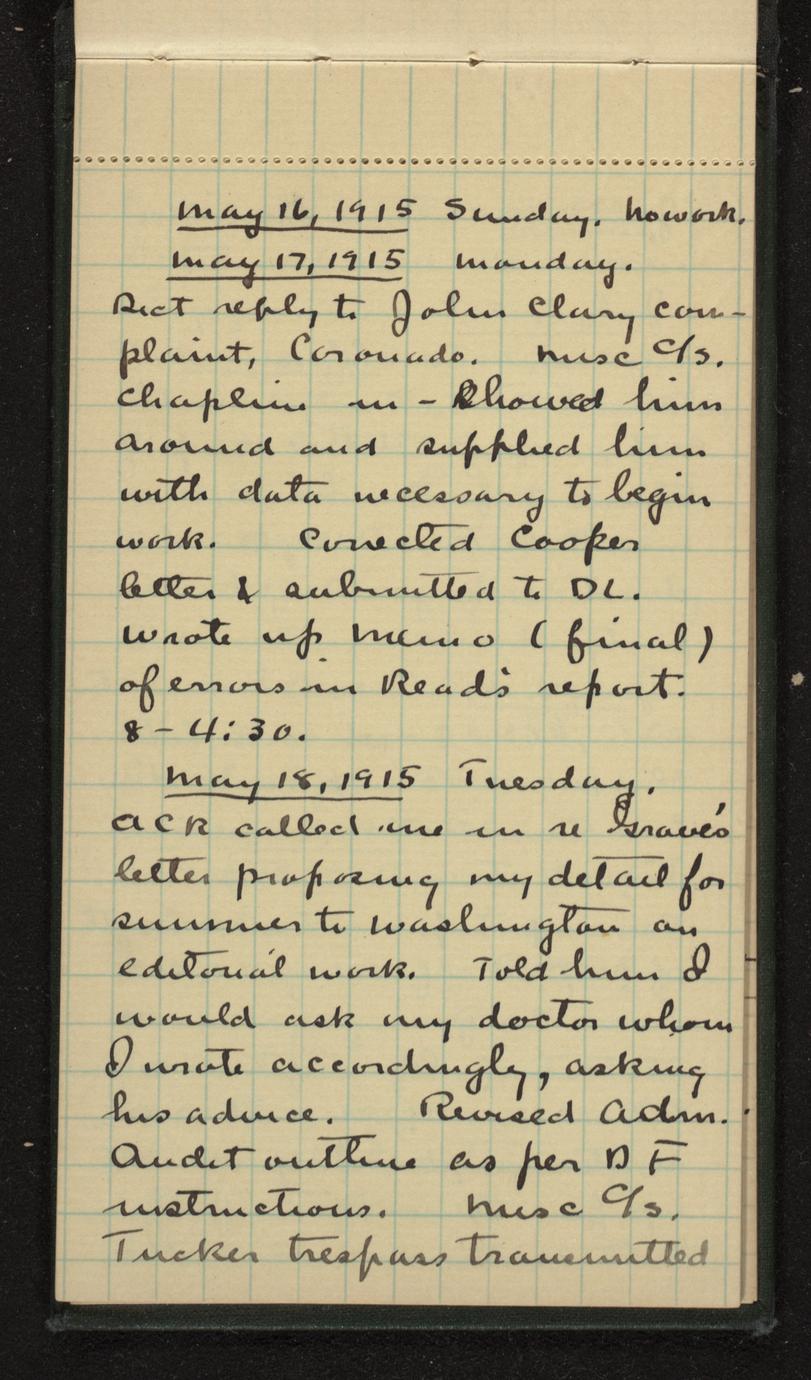 May 16, 1915 Sunday. No work.
May 17, 1915 Monday.
Dict reply to John Clary com-
plaint, Coronado. Misc C/s.
Chaplin in - Showed him
around and supplied him
with data necessary to begin
work. Corrected Cooper
letter & submitted to DL.
Wrote up memo (final)
of errors in Read's report.
8 - 4:30.
May 18, 1915 Tuesday.
ACR called me in re Graves'
letter proposing my detail for
summer to Washington on
editorial work. Told him I
would ask my doctor whom
I wrote accordingly, asking
his advice. Revised Adm.
Audit outline as per DF
instructions. Misc C/s.
Tucker trespass transmitted